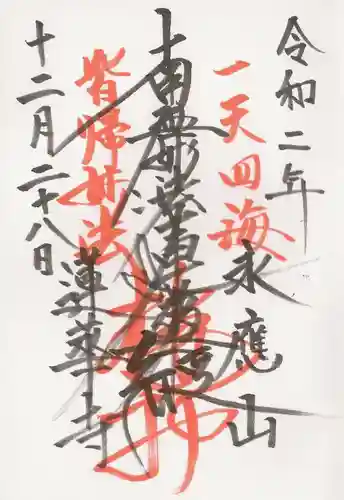 令和二年
永應山
一天四海
南無妙法蓮華経
皆帰妙法
蓮華寺
十二月二十八日